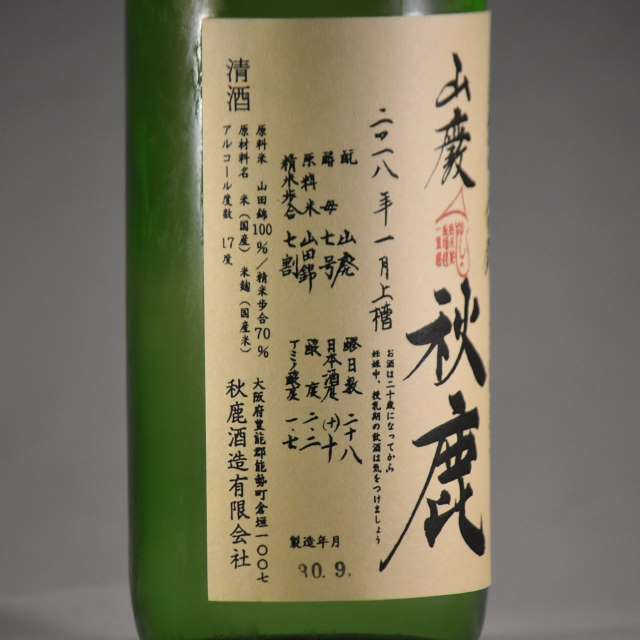 山廃
秋鹿
二〇一八年一月上槽
酛 山廃
酵母 七号
原料米 山田錦
精米歩合 七割
醪日数 二十八
日本酒度 (+)十
酸度 二.二
アミノ酸度 一.七
お酒は二十歳になってから
妊娠中、授乳期の飲酒は気をつけましょう
清酒
原料米 山田錦100%/精米歩合70%
原材料名 米(国産)米麹(国産米)
アルコール度数 17度
大阪府豊能郡能勢町倉垣一〇〇七
秋鹿酒造有限会社
製造年月
30.9.